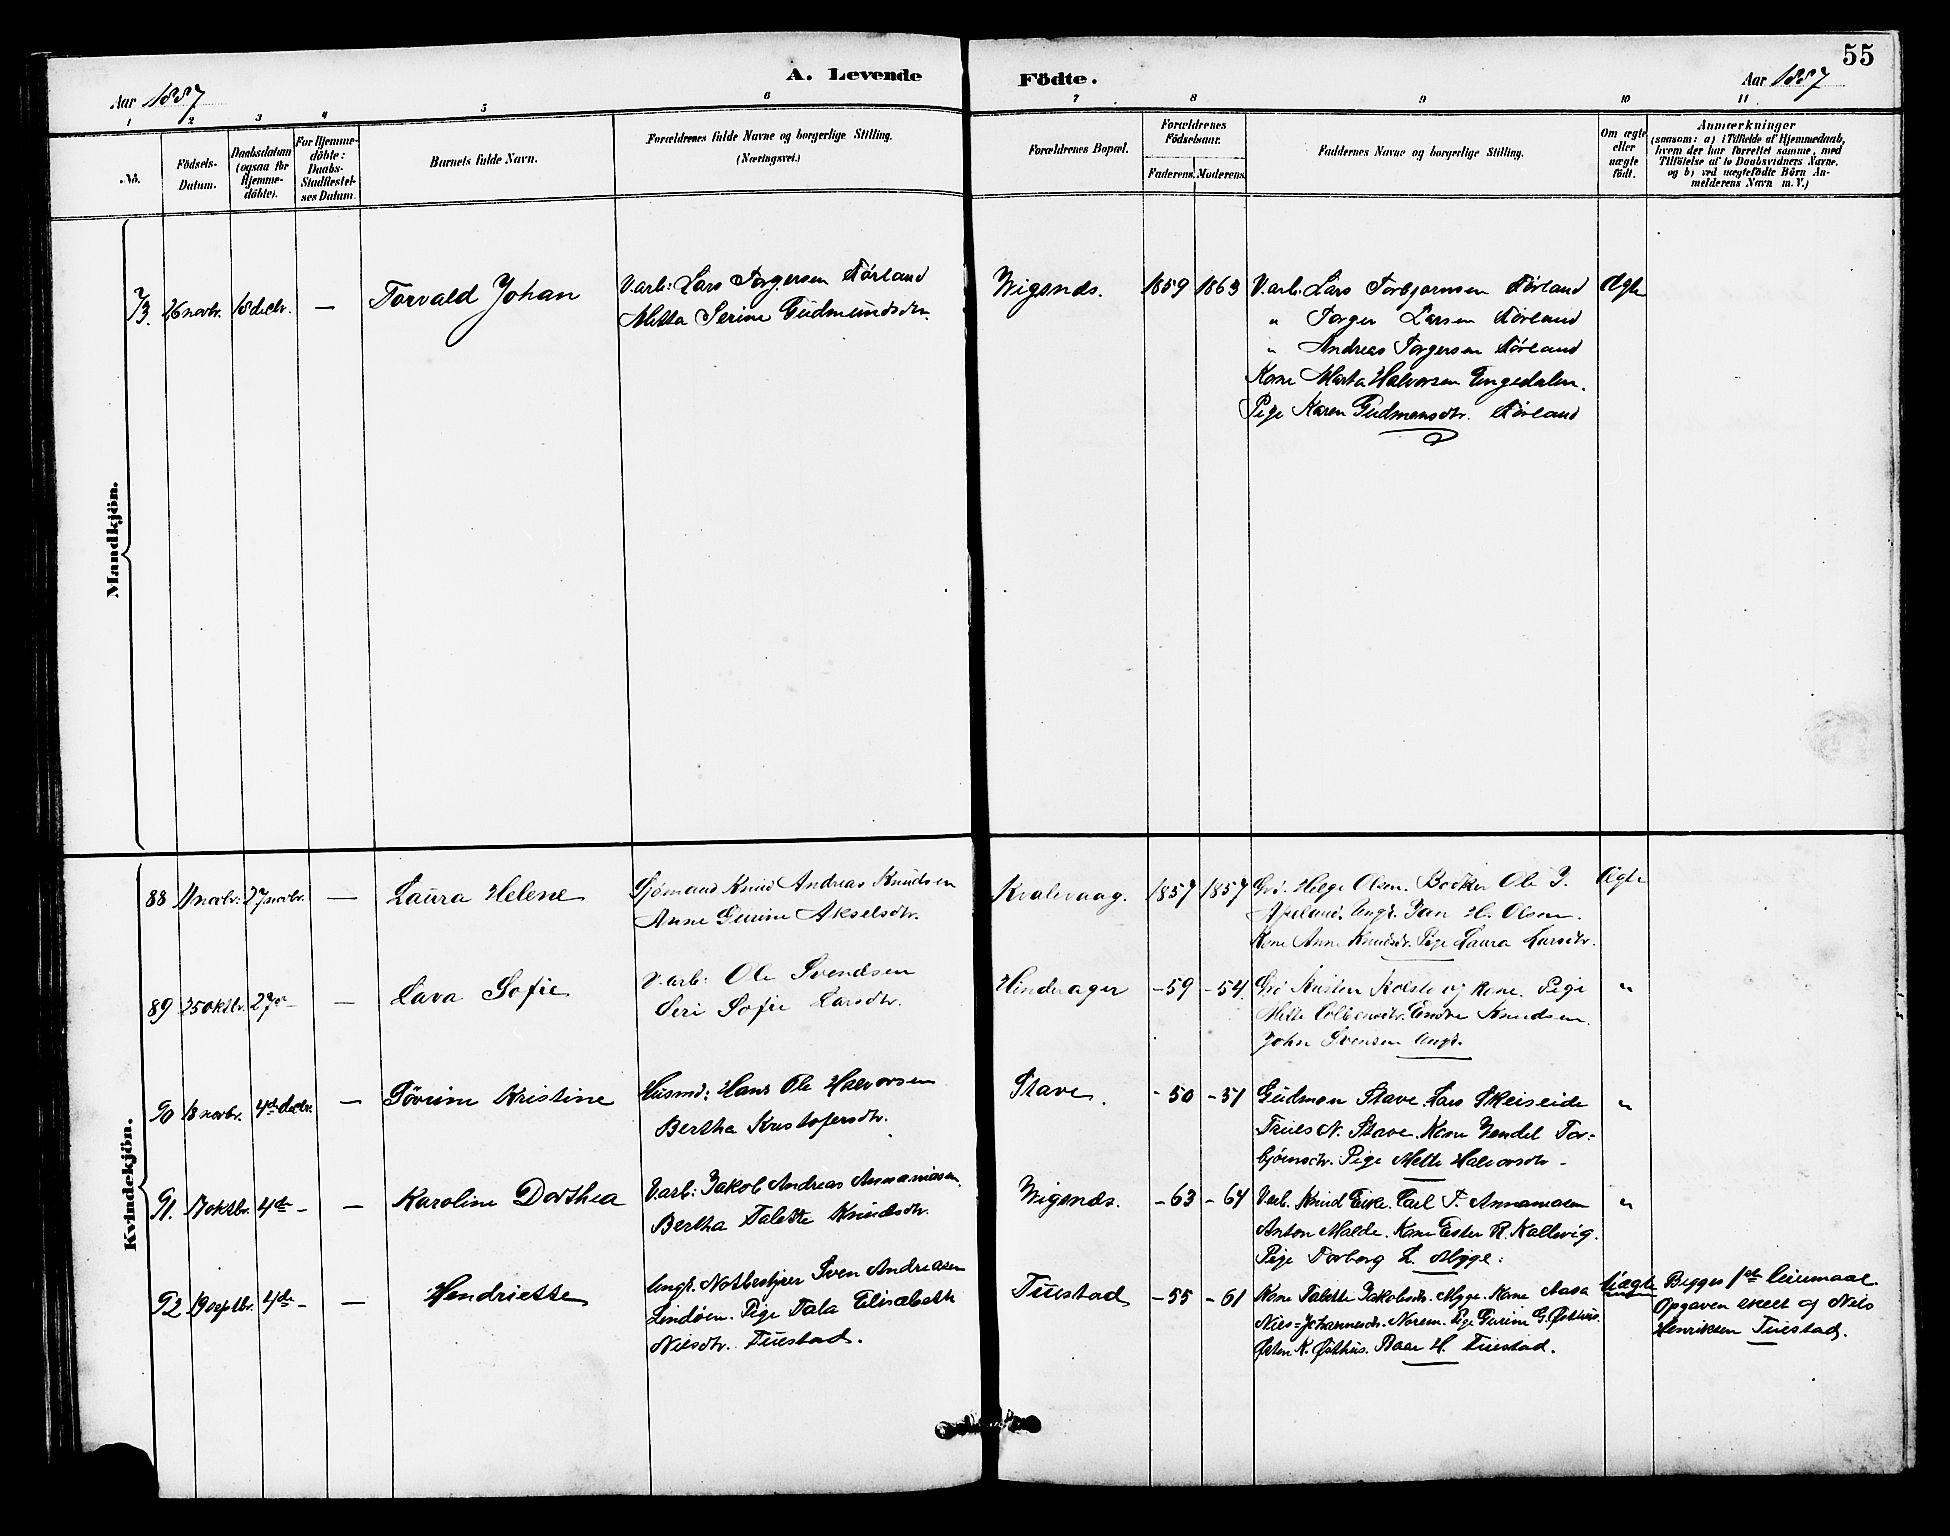 55
A. Levende Födte.
Aar 1887
Aar 1887
1 2 3 4 5 6 7 8 9 10 11
No.
Födsels-Datum.
Daabsdatum (ogsaa for Hjemme-döbte).
For Hjemme-döbte: Daabs-Stadfæstel-ses Datum.
Barnets fulde Navn.
Forældrenes fulde Navne og borgerlige Stilling. (Næringsvei.)
Forældrenes Bopæl.
Forældrenes Födselsaar.
Faderens. Moderens.
Faddernes Navne og borgerlige Stilling.
Om ægte eller uægte födt.
Anmærkninger
(saasom: a) i Tilfælde af Hjemmedaab,
hvem der har forrettet samme, med
Tilföielse af to Daabsvidners Navne.
og b) ved uægtefödte Börn An-
melderens Navn m. V.)
Mandkjön.
73. 26 novbr. 18 decbr. — Torvald Johan
V.arb: Lars Torgersen Førland
Metta Serine Gudmundsdtr.
Vigsnds. 1859 1863
V.arb. Lars Torbjørnsen Førland
" Torger Larsen Førland
" Andreas Torgersen Førland
Kone Marta Halvorsen Engedalen.
Pige Karen Gudmansdtr. Førland
Ægte
Kvindekjön.
88 11 novbr. 27 novbr. — Laura Helene
Sjømand Knud Andreas Knudsen
Anne Gurine Akselsdtr.
Kvalevaag. 1857 1857
Grd. Helge Olsen. Bødker Ole J.
Apeland. Ungk. Jan H. Olsen.
Kone Anne Knudsdtr. Pige Laura Larsdtr.
Ægte
89 25 oktbr. 27de — Lava Sofie
V.arb: Ole Svendsen
Seri Sofie Larsdtr.
Hinderager -59 -54.
og Kone. Pige
Mette Endre Knudsen.
John Svensen Ungk.
"
90 18 novbr. 4de decbr. — Sørine Kristine
Husmd: Hans Ole Halvorsen
Bertha Kristofersdtr.
Stave. -50 -51
Gudman Stave. Lars Skeiseide
Truls N. Stave. Kone Jendel Tor=
bjørnsdtr. Pige Mette Halvorsdtr -
"
91. 17 oktbr. 4de - — Karoline Dorthea
V.arb: Jakob Andreas Annaniasen.
Bertha Talette Knudsdtr.
Vigsnds. -63 -64
V.arb. Knud Eike. Carl T. Annaniasen
Anton Malde. Kone Ester R. Kallevig.
Pige Torborg L. Mygge:
"
92 19 septbr. 4de - — Hendriette
Ungk. Notbestyrer Sven Andreasen
Lindøen. Pige Tala Elisabeth
Nilsdtr. Tuestad.
Tuestad -55 -61
Kone Talette Jakobsdtr. Mygge. Kone Aasa
Nils=Johannesdtr. Norem. Pige Gurine G. Østhus.
Østen K. Østhus. Baar H. Tuestad.
Uægte
Begges 1ste leiermaal.
Opgaven skeet af Nils
Henriksen Tuestad.